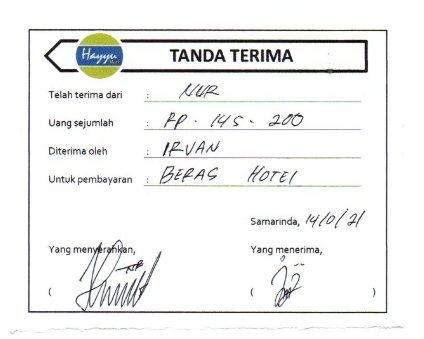 Hayyu
TANDA TERIMA
Telah terima dari : NUR
Uang sejumlah : RP. 145. 200
Diterima oleh : IRVAN
Untuk pembayaran : BERAS HOTEL
Samarinda, 14/0/21
Yang menyerahkan, Yang menerima,
( ( )